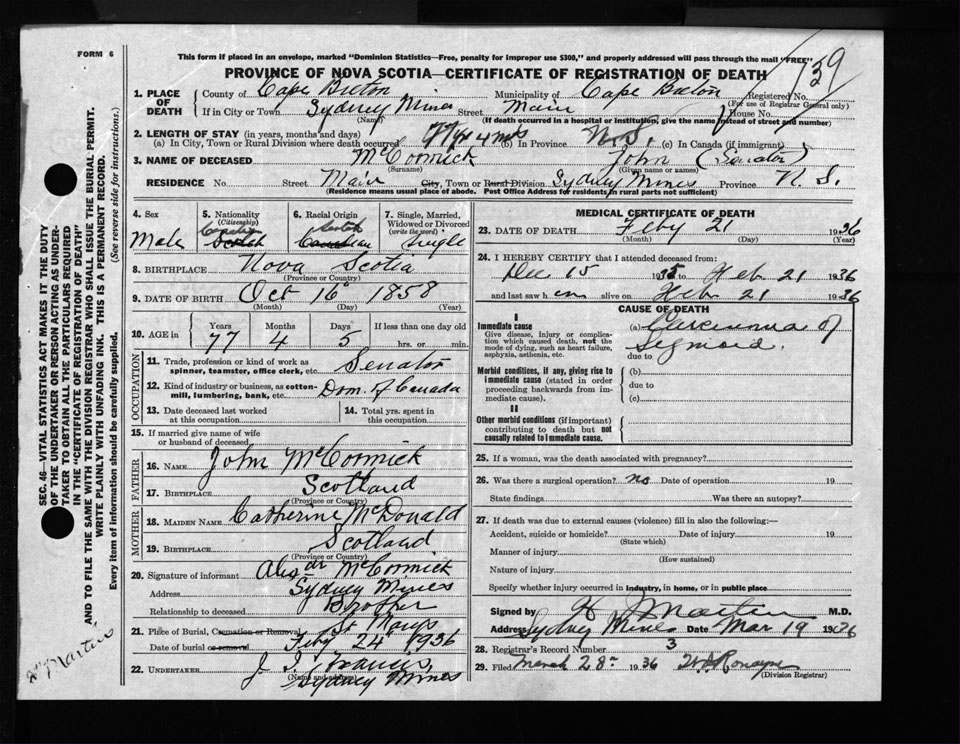 FORM 6
This form if placed in an envelope, marked "Dominion Statistics—Free, penalty for improper use $300," and properly addressed will pass through the mail "FREE"
PROVINCE OF NOVA SCOTIA—CERTIFICATE OF REGISTRATION OF DEATH
139
1. PLACE OF DEATH County of Cape Breton Municipality of Cape Breton Registered No.
(For use of Registrar General only)
If in City or Town Sydney Mines Street Main House No.
(Name) (If death occurred in a hospital or institution, give the name instead of street and number)
2. LENGTH OF STAY (in years, months and days)
(a) In City, Town or Rural Division where death occurred 77 yr 4 ms (b) In Province N.S. (c) In Canada (if immigrant)
3. NAME OF DECEASED McCormick John (Senator)
(Surname) (Given name or names)
RESIDENCE No. Street Main City, Town or Rural Division Sydney Mines Province N.S.
(Residence means usual place of abode. Post Office Address for residents in rural parts not sufficient)
4. Sex Male
5. Nationality (Citizenship) Canadian Scotch
6. Racial Origin Scotch Canadian
7. Single, Married, Widowed or Divorced (write the word) Single
8. BIRTHPLACE Nova Scotia
(Province or Country)
9. DATE OF BIRTH Oct 16 1858
(Month) (Day) (Year)
10. AGE in Years Months Days If less than one day
77 4 5 hrs. or min.
OCCUPATION
11. Trade, profession or kind of work as spinner, teamster, office clerk, etc. Senator
12. Kind of industry or business, as cotton-mill, lumbering, bank, etc. Dom. of Canada
13. Date deceased last worked at this occupation
14. Total yrs. spent in this occupation
15. If married give name of wife or husband of deceased
FATHER
16. NAME John McCormick
17. BIRTHPLACE Scotland
(Province or Country)
MOTHER
18. MAIDEN NAME Catherine McDonald
19. BIRTHPLACE Scotland
(Province or Country)
20. Signature of informant McCormick
Address Sydney Mines
Relationship to deceased Brother
21. Place of Burial, Cremation or Removal St Marys
Date of burial or removal Feby 24 1936
22. UNDERTAKER J. Francis
(Name and address)
Sydney Mines
MEDICAL CERTIFICATE OF DEATH
23. DATE OF DEATH Feby 21 1936
(Month) (Day) (Year)
24. I HEREBY CERTIFY that I attended deceased from:
Dec 15 1935 to Feb 21 1936
and last saw him alive on Feb 21 1936
CAUSE OF DEATH
I
Immediate cause
Give disease, injury or complication which caused death, not the mode of dying, such as heart failure, asphyxia, asthenia, etc.
(a) Carcinoma of
Sigmoid.
due to
Morbid conditions, if any, giving rise to immediate cause (stated in order proceeding backwards from immediate cause).
(b)
due to
(c)
II
Other morbid conditions (if important) contributing to death but not causally related to immediate cause.
25. If a woman, was the death associated with pregnancy?
26. Was there a surgical operation? no Date of operation 19
State findings Was there an autopsy?
27. If death was due to external causes (violence) fill in also the following:—
Accident, suicide or homicide? Date of injury 19
(State which)
Manner of injury
(How sustained)
Nature of injury
Specify whether injury occurred in industry, in home, or in public place
Signed by Martin M.D.
Address Sydney Mines Date Mar 19 1936
28. Registrar's Record Number 3
29. Filed March 28 1936
(Division Registrar)
SEC. 46—VITAL STATISTICS ACT MAKES IT THE DUTY OF THE UNDERTAKER OR PERSON ACTING AS UNDERTAKER TO OBTAIN ALL THE PARTICULARS REQUIRED IN THE "CERTIFICATE OF REGISTRATION OF DEATH" AND TO FILE THE SAME WITH THE DIVISION REGISTRAR WHO SHALL ISSUE THE BURIAL PERMIT.
WRITE PLAINLY WITH UNFADING INK. THIS IS A PERMANENT RECORD.
Every item of information should be carefully supplied. (See reverse side for instructions.)
Dr Martin